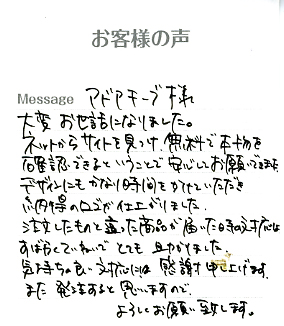 お客様の声
Message アドアキーブ 様
大変 お世話になりました。
ネットからサイトを見つけ、無料で本物を
確認できるということで安心してお願いできます。
デザインにもかなり時間をかけていただき
納得のロゴが仕上がりました。
注文したものと違った商品が届いた時の対応も
すばやくていねいで とても 助かりました。
気持ちの良い 対応には 感謝申し上げます。
また 発注すると思いますので、
よろしくお願い致します。